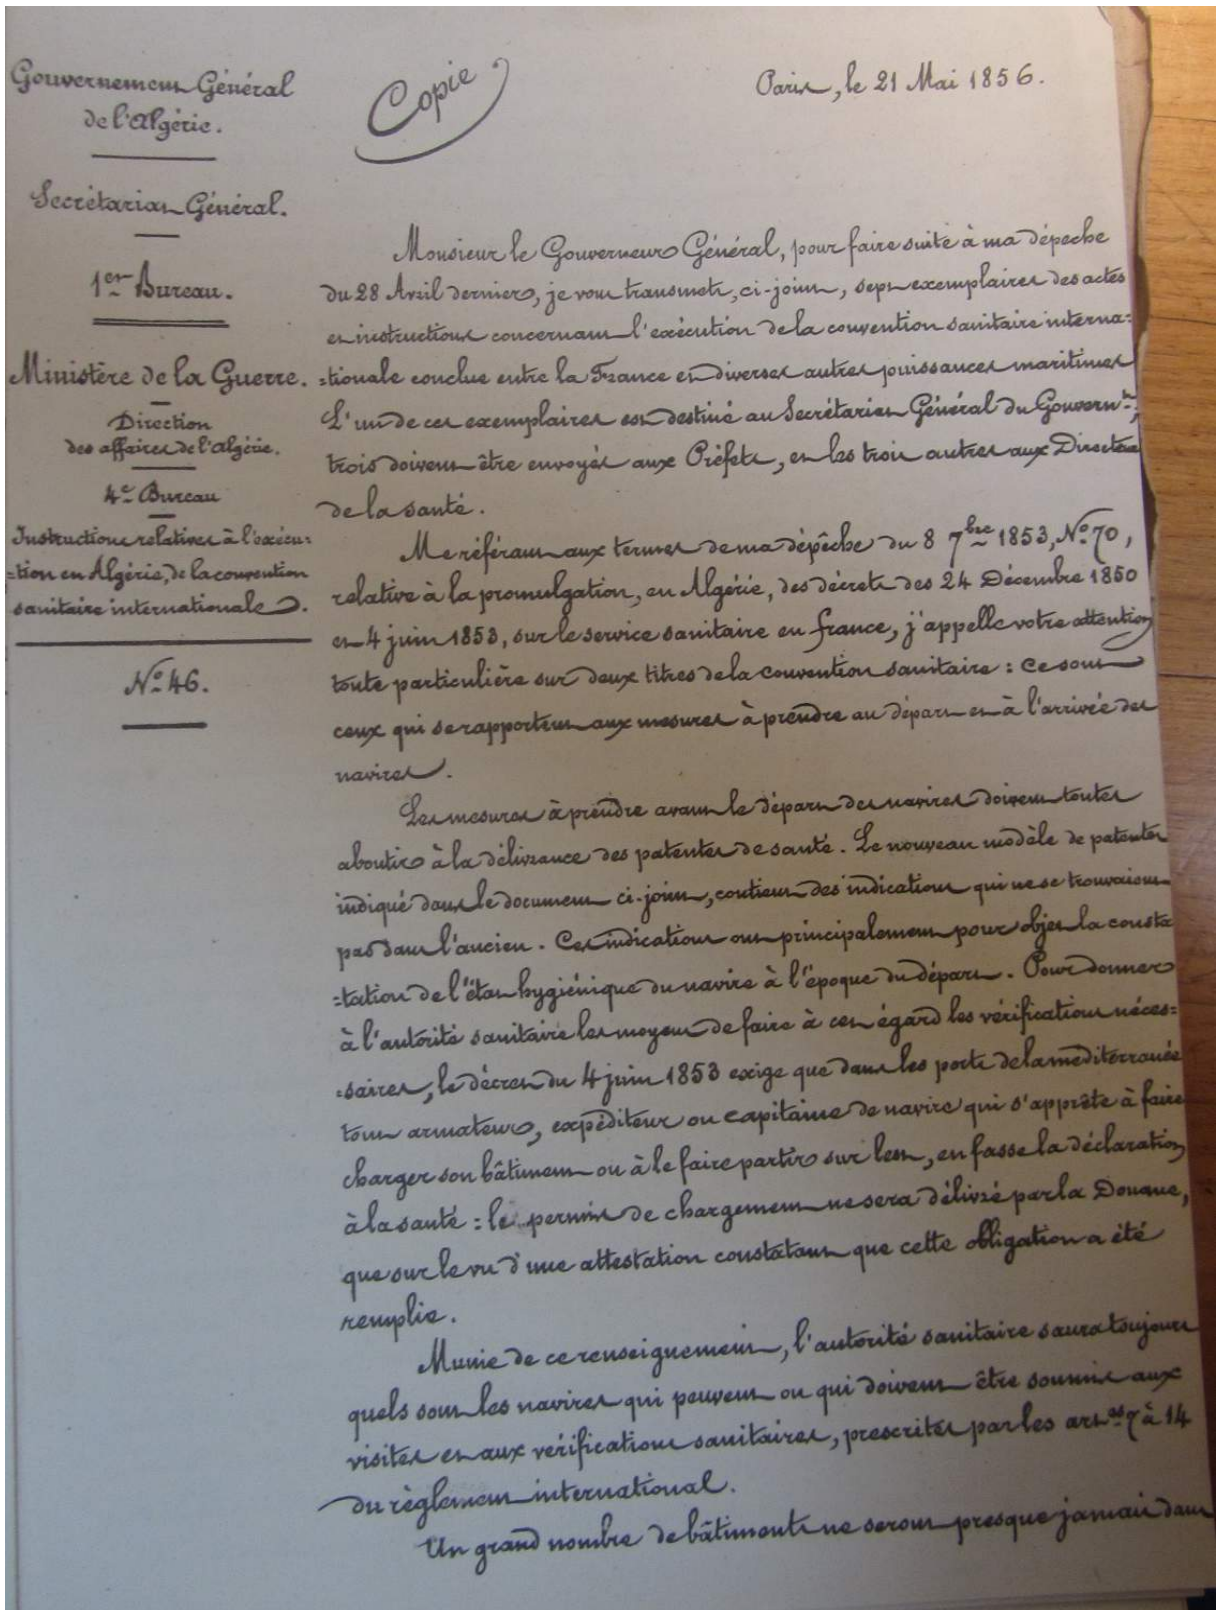 Gouvernement Général
de l'Algérie.
Secrétariat Général.
1er Bureau.
Ministère de la Guerre.
Direction
des affaires de l'Algérie.
4e Bureau
Instructions relatives à l'exécu=
=tion en Algérie, de la convention
sanitaire internationale.
No 46.
Copie
Paris, le 21 Mai 1856.
Monsieur le Gouverneur Général, pour faire suite à ma dépeche
du 28 Avril dernier, je vous transmets, ci-joint, sept exemplaires des actes
et instructions concernant l'exécution de la convention sanitaire interna=
=tionale conclue entre la France et diverses autres puissances maritimes
L'un de ces exemplaires est destiné au Secrétariat Général du Gouvernt,
trois doivent être envoyés aux Préfets, et les trois autres aux Directeurs
de la santé.
Me référant aux termes de ma dépêche du 8 7bre 1853, No 70,
relative à la promulgation, en Algérie, des décrets des 24 Décembre 1850
et 4 juin 1853, sur le service sanitaire en france, j'appelle votre attention
toute particulière sur deux titres de la convention sanitaire : ce sont
ceux qui se rapportent aux mesures à prendre au départ et à l'arrivée des
navires.
Les mesures à prendre avant le départ des navires doivent toutes
aboutir à la délivrance des patentes de santé. Le nouveau modèle de patentes
indiqué dans le document ci-joint, contient des indications qui ne se trouvaient
pas dans l'ancien. Ces indications ont principalement pour objet la consta
=tation de l'état hygiénique du navire à l'époque du départ. Pour donner
à l'autorité sanitaire les moyens de faire à cet égard les vérifications néces=
=saires, le décret du 4 juin 1853 exige que dans les ports de la mediterranée
tout armateur, expéditeur ou capitaine de navire qui s'apprête à faire
charger son bâtiment ou à le faire partir sur lest, en fasse la déclaration
à la santé : le permis de chargement ne sera délivré par la Douane,
que sur le vu d'une attestation constatant que cette obligation a été
remplie.
Munie de ce renseignement, l'autorité sanitaire saura toujours
quels sont les navires qui peuvent ou qui doivent être soumis aux
visites et aux vérifications sanitaires, prescrites par les arts 7 à 14
du règlement international.
Un grand nombre de bâtiments ne seront presque jamais dans